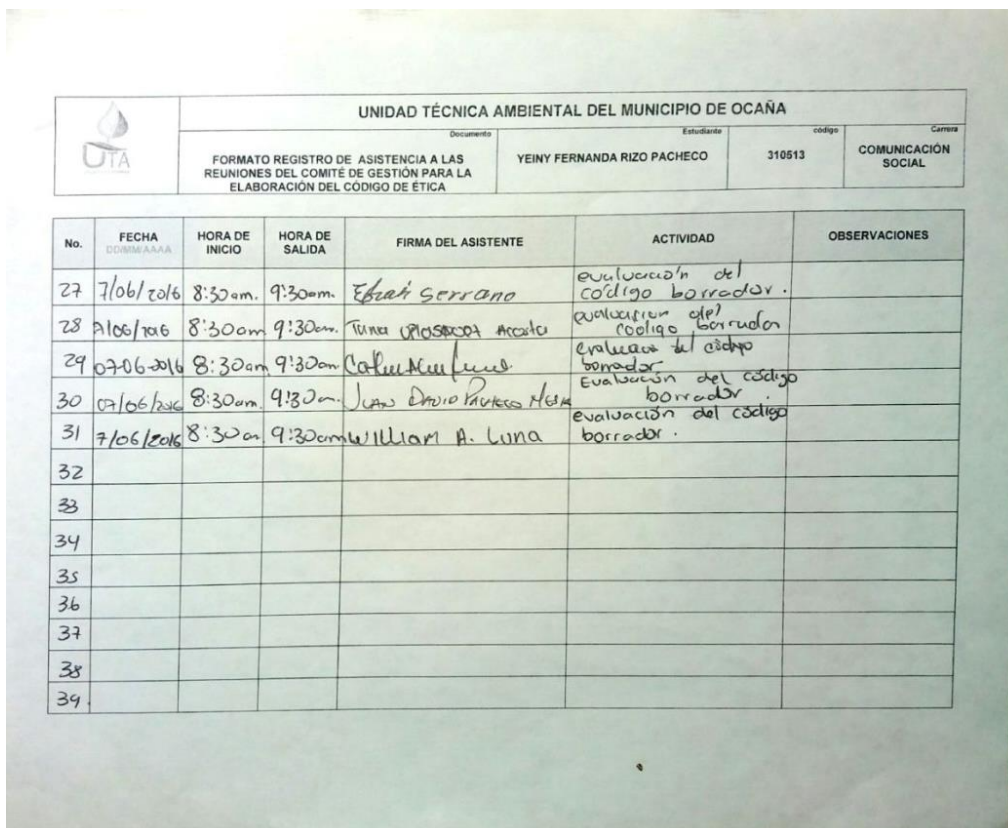 UNIDAD TÉCNICA AMBIENTAL DEL MUNICIPIO DE OCAÑA
UTA
Documento
FORMATO REGISTRO DE ASISTENCIA A LAS
REUNIONES DEL COMITÉ DE GESTIÓN PARA LA
ELABORACIÓN DEL CÓDIGO DE ÉTICA
Estudiante
YEINY FERNANDA RIZO PACHECO
código
310513
Carrera
COMUNICACIÓN
SOCIAL
No. FECHA DD/MM/AAAA HORA DE INICIO HORA DE SALIDA FIRMA DEL ASISTENTE ACTIVIDAD OBSERVACIONES
27 7/06/2016 8:30am. 9:30am. Serrano evaluación del
código borrador.
28 8:30am 9:30am. Acosta del
codigo borrador
29 07-06-2016 8:30am 9:30am del código
borrador
30 07/06/2016 8:30am. 9:30am. JUAN DAVID PACHECO Evaluación del código
borrador.
31 7/06/2016 8:30am 9:30am William A. Luna evaluación del código
borrador.
32
33
34
35
36
37
38
39.